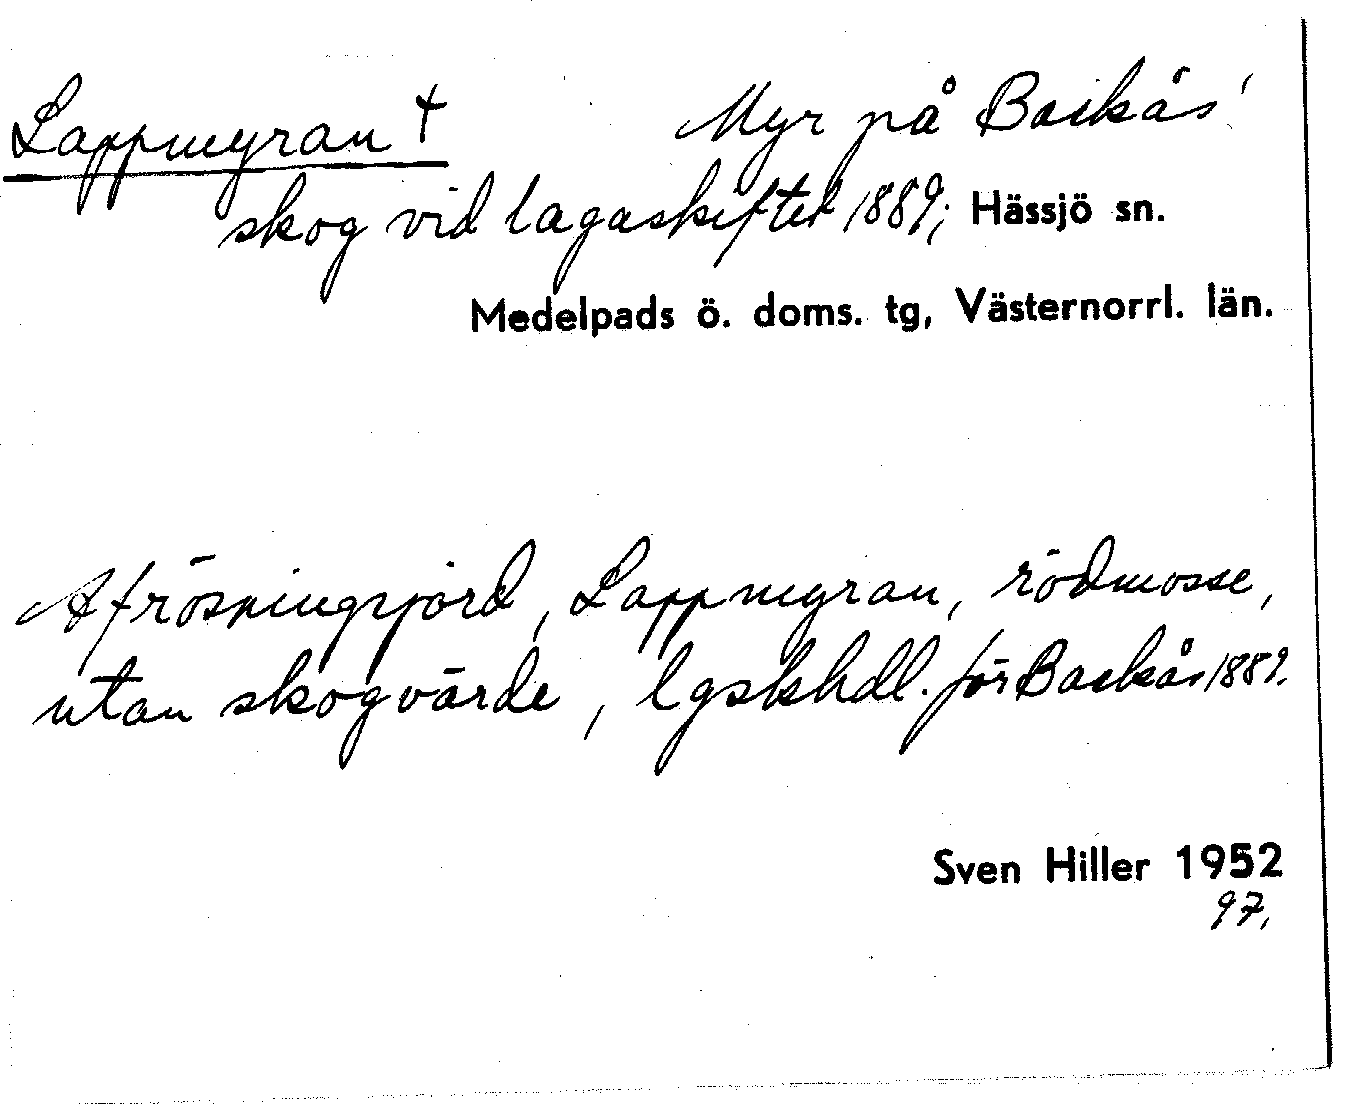 Lappmyran † Myr på Backås'
skog vid lagaskiftet 1889; Hässjö sn.
Medelpads ö. doms. tg, Västernorrl. län.
Afrösningsjord, Lappmyran, rödmosse,
utan skogvärde, lgskhdl. för Backås 1889.
Sven Hiller 1952
97,